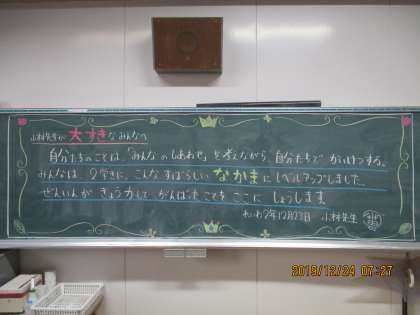 小林先生が大すきなみんなへ
自分たちのことは、「みんなのしあわせ」を考えながら、自分たちでかいけつする。
みんなは、2学きに、こんなすばらしいなかまにレベルアップしました。
ぜんいんがきょう力して、がんばったことをここにしょうします。
れいわ元年12月23日 小林先生
2019/12/24 07:27